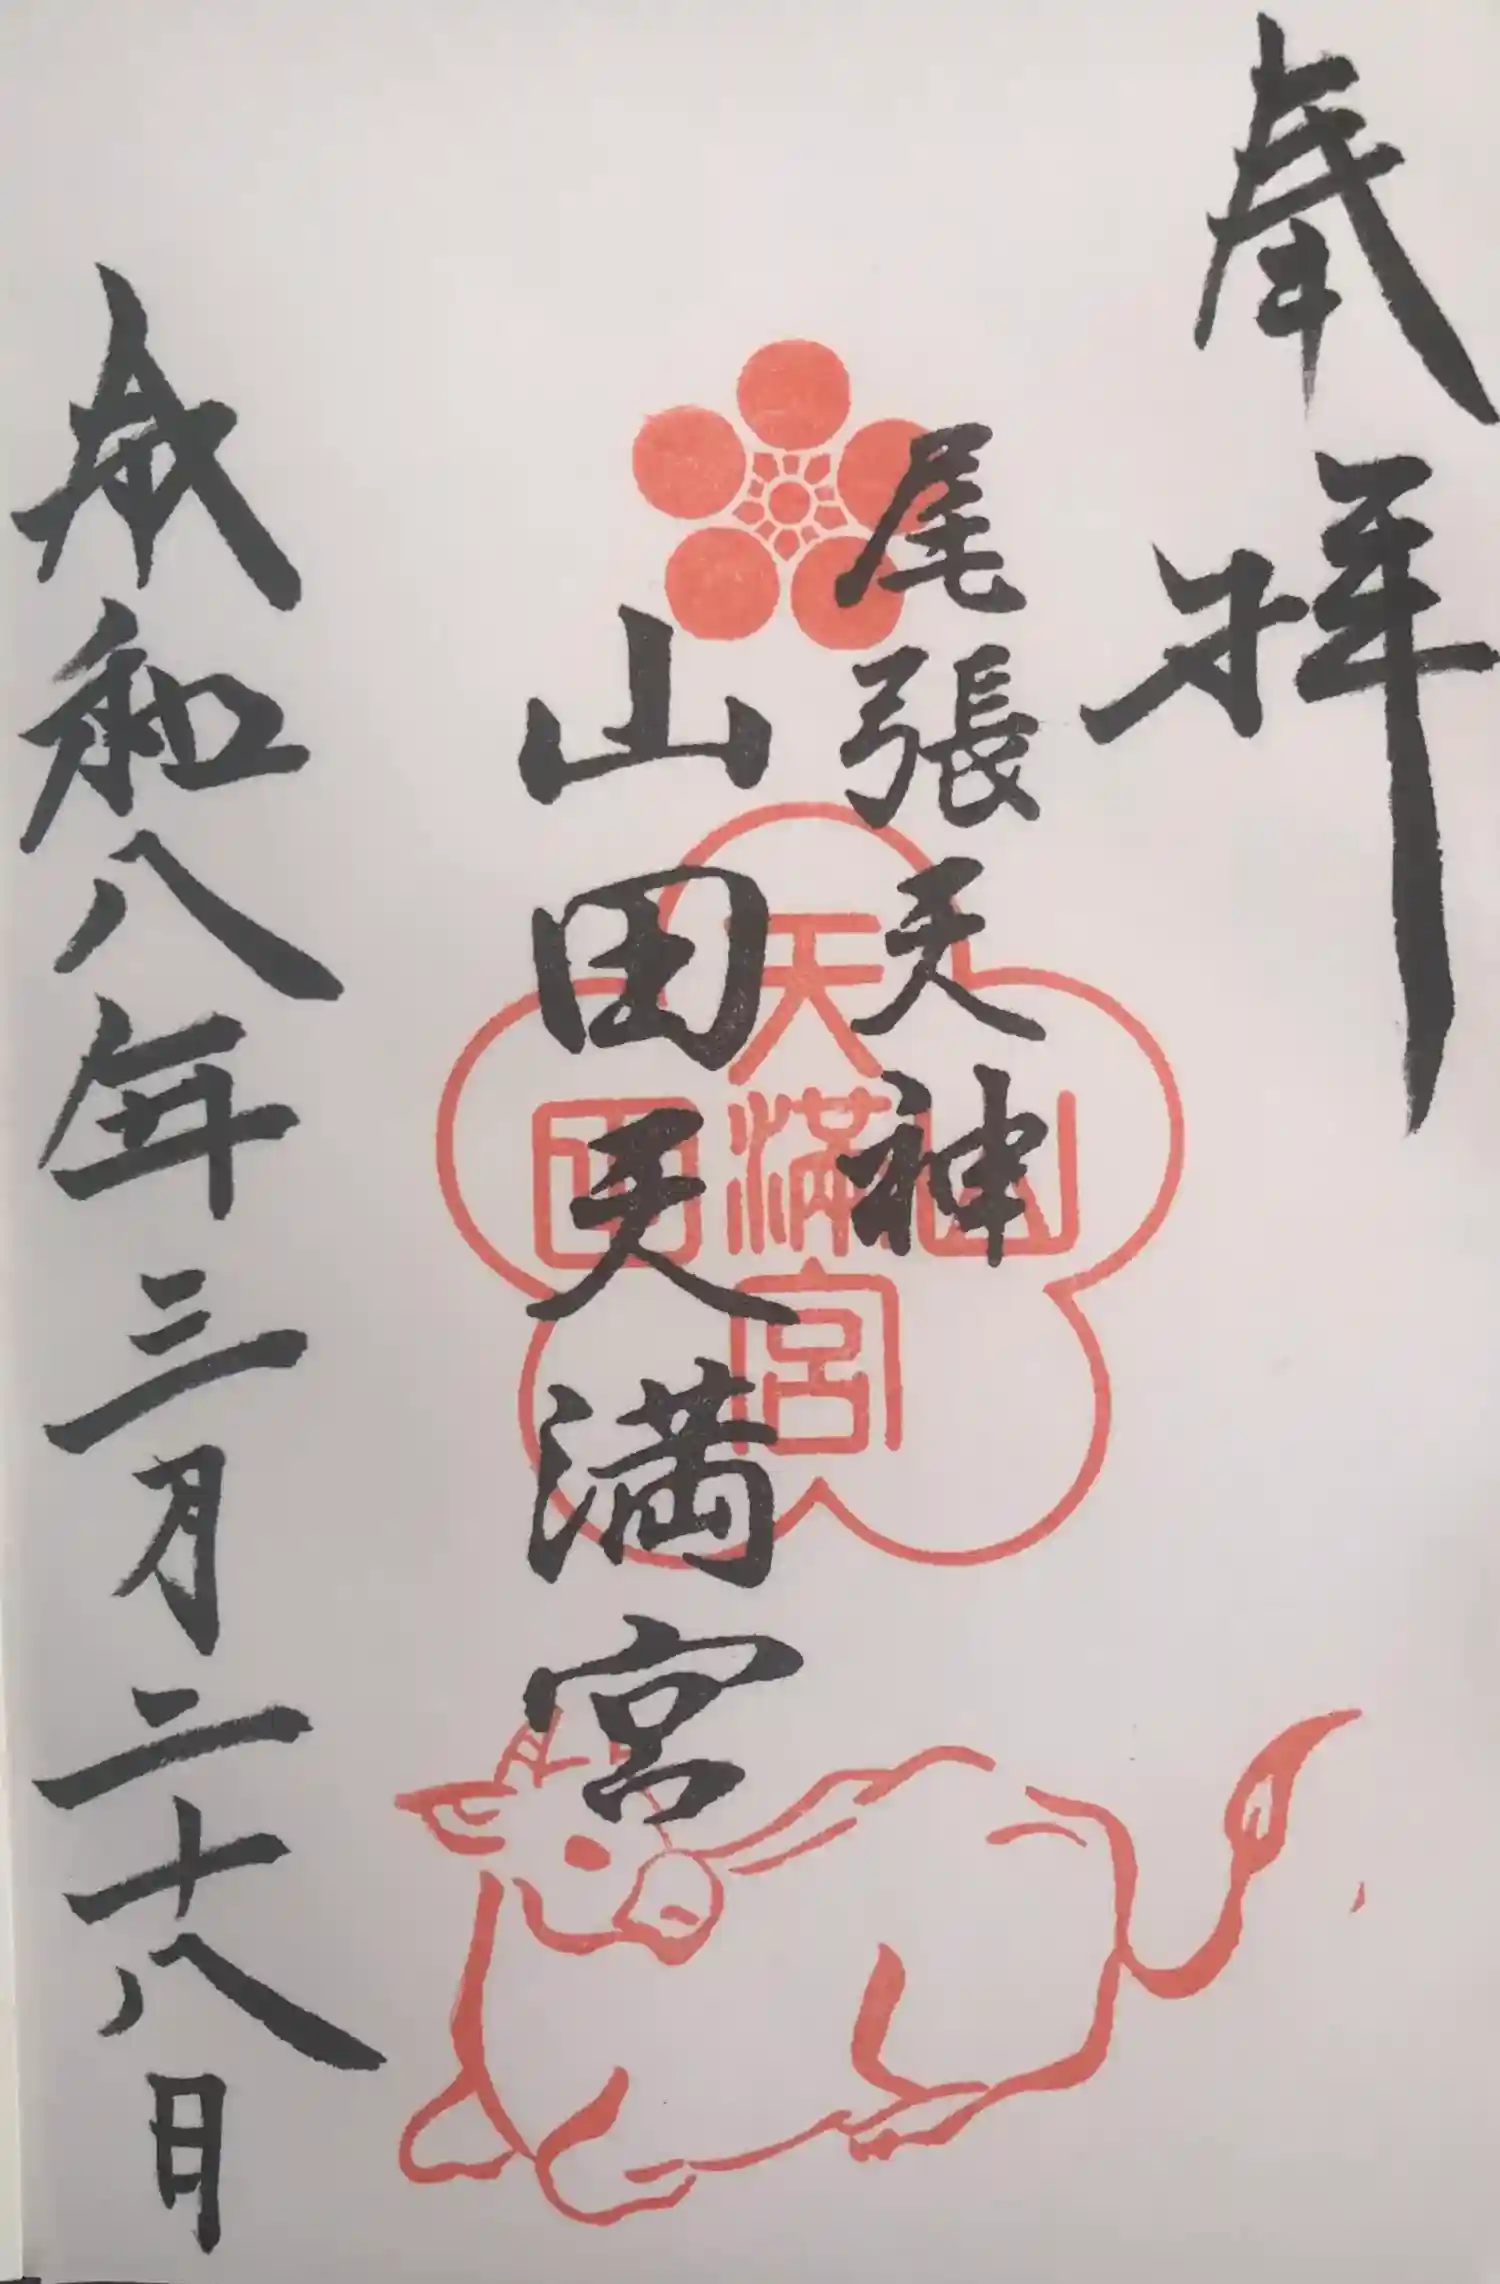 奉拝
尾張天神
山田天満宮
令和八年三月二十八日
天満宮
山田